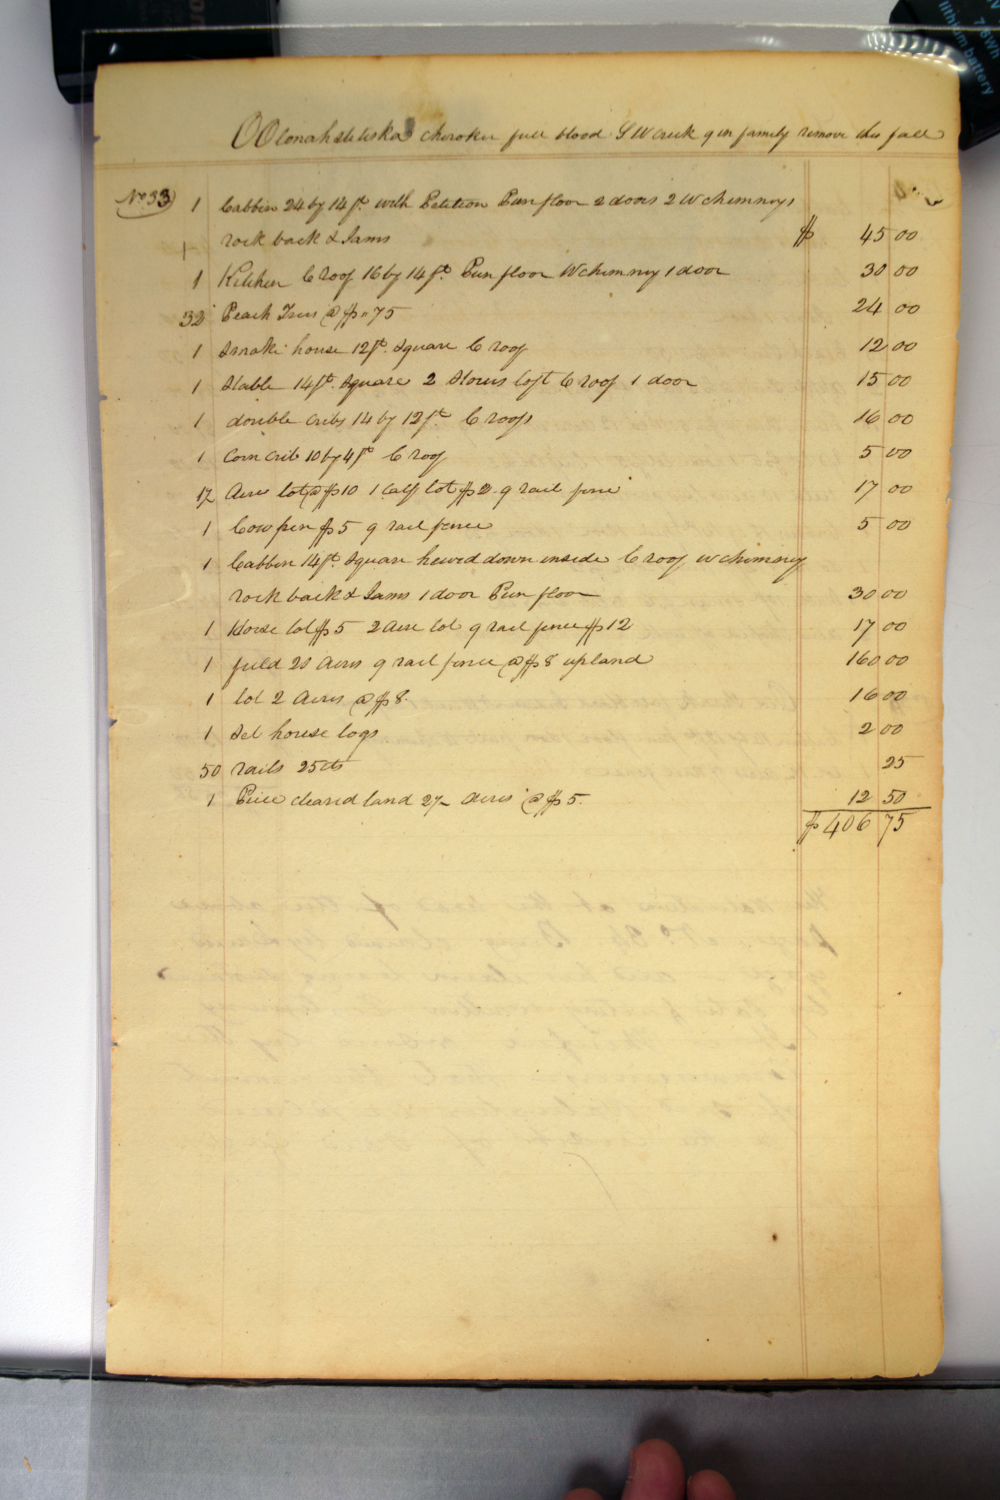 OOlonahstetiska Cherokee full blood S W Creek 9 in family remove this fall
No 33
1 Cabbin 24 by 14 ft. with Petition Pun floor 2 doors 2 W chimneys
rock back & Jams $ 45 00
1 Kitchen C roof 16 by 14 ft. Pun floor W chimney 1 door 30 00
32 Peach Trees @ $ " 75 24 00
1 Smoke house 12 ft. Square C roof 12 00
1 Stable 14 ft. Square 2 Stories loft C roof 1 door 15 00
1 double cribs 14 by 12 ft. C roofs 16 00
1 Corn crib 10 by 4 ft C roof 5 00
1½ Acres lot @ $10 1 Calf lot $2. 9 rail fence 17 00
1 Cow pen $5 9 rail fence 5 00
1 Cabbin 14 ft. Square hewed down inside C roof W chimney
rock back & Jams 1 door Pun floor 30 00
1 Horse lot $5 2 Acre lot 9 rail fence $12 17 00
1 field 20 Acres 9 rail fence @ $8 upland 160 00
1 lot 2 Acres @ $8. 16 00
1 Set house logs 2 00
50 rails 25cts 25
1 Piece cleared land 2½ Acres @ $5. 12 50
$ 406 75
7.6Wh
lithium battery